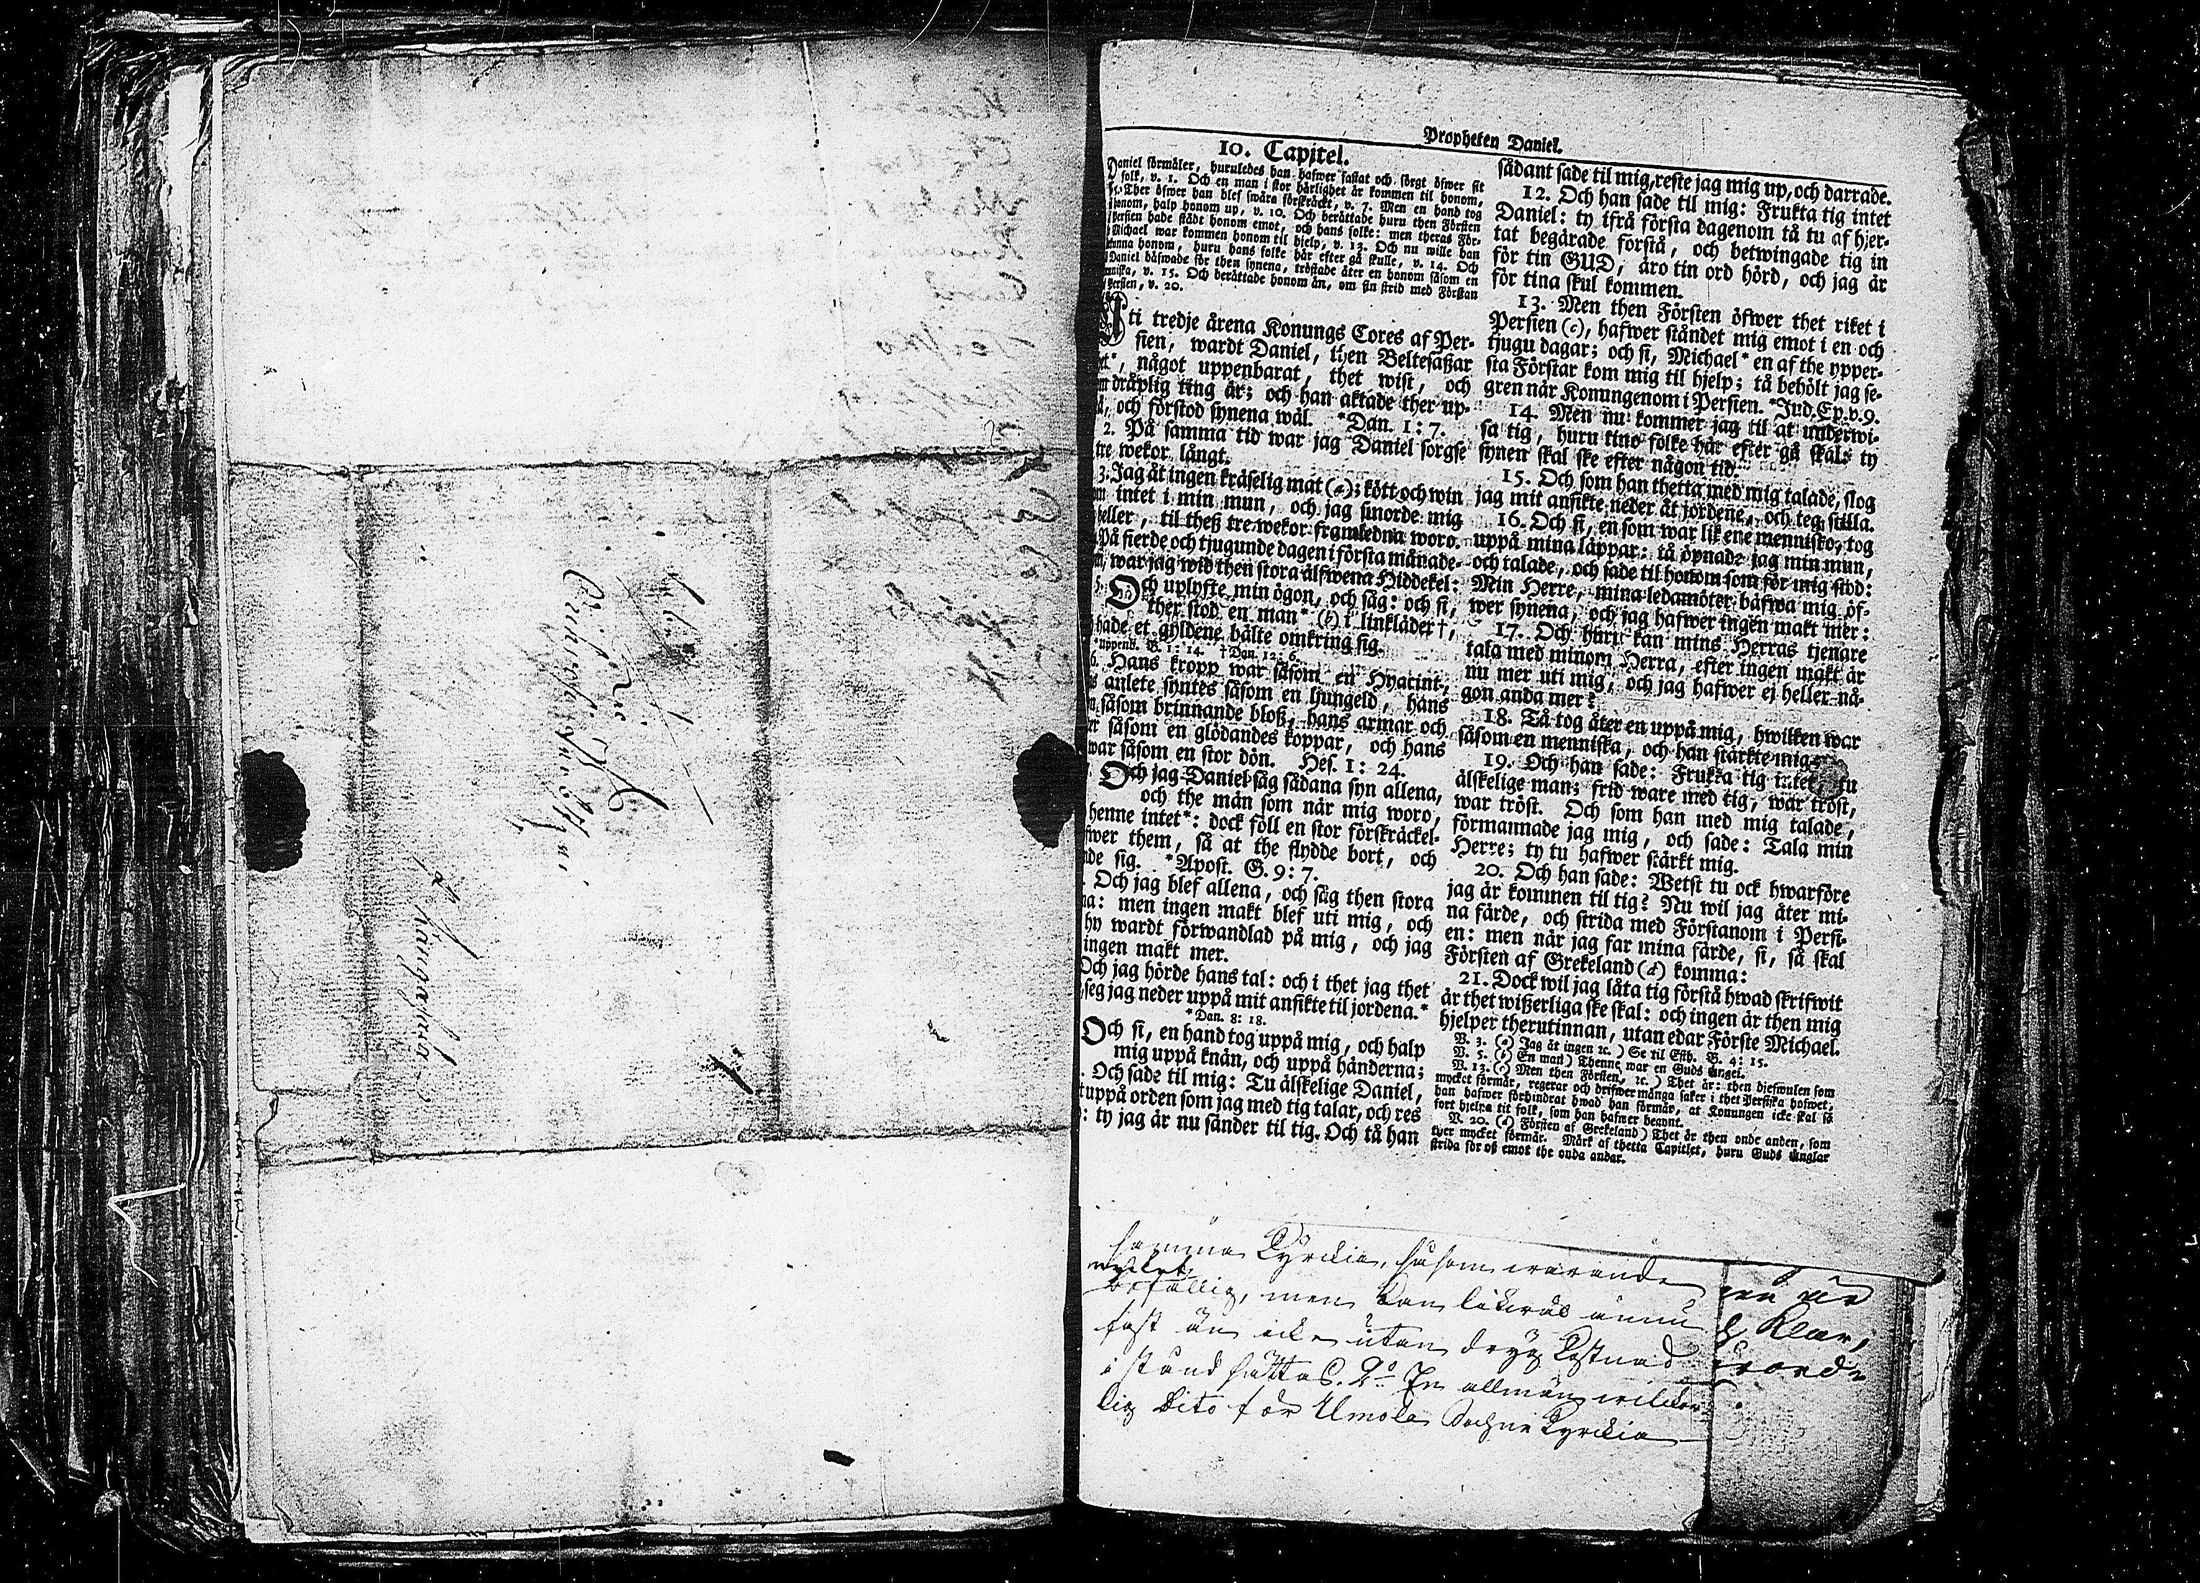 Propheten Daniel.
10. Capitel.
Daniel förmäler, huruledes han hafwer fastat och sörgt öfwer sit
folk, v. 1. Och en man i stor härlighet är kommen til honom,
v. 5. Ther öfwer han blef swåra förskräckt, v. 7. Men en hand tog
honom, halp honom up, v. 10. Och berättade huru then Försten
Persien hade städt honom emot, och hans folke: men theras För-
Michael war kommen honom til hjelp, v. 13. Och nu wille han
kunna honom, huru hans folke här efter gå skulle, v. 14. Och
Daniel bäfwade för then synena, tröstade åter en honom såsom en
menniska, v. 15. Och berättade honom än, om sin strid med Förstan
Persien, v. 20.
Uti tredje årena Konungs Cores af Per-
sien, wardt Daniel, then Beltesaßar
het*, något uppenbarat, thet wist, och
om dråplig ting är; och han aktade ther up-
å, och förstod synena wäl. *Dan. 1: 7.
2. På samma tid war jag Daniel sorgse
tre wekor långt.
3. Jag åt ingen kräselig mat (a); kött och win
kom intet i min mun, och jag smorde mig
heller, til theß tre wekor framledna woro.
På fierde och tjugunde dagen i första månade-
nom, war jag wid then stora älfwena Hiddekel:
5. Och uplyfte min ögon, och såg: och si,
ther stod en man* (b) i linkläder†,
hade et gyldene bälte omkring sig.
*uppenb. B. 1: 14. †Dan. 12: 6.
6. Hans kropp war såsom en Hyacint,
hans anlete syntes såsom en ljungeld, hans
ögon såsom brinnande bloß, hans armar och
fötter såsom en glödandes koppar, och hans
war såsom en stor dön. Hes. 1: 24.
Och jag Daniel såg sådana syn allena,
och the män som när mig woro,
henne intet*: dock föll en stor förskräckel-
öfwer them, så at the flydde bort, och
de sig. *Apost. G. 9: 7.
Och jag blef allena, och såg then stora
na: men ingen makt blef uti mig, och
hy wardt förwandlad på mig, och jag
ingen makt mer.
Och jag hörde hans tal: och i thet jag thet
seg jag neder uppå mit ansikte til jordena.*
*Dan. 8: 18.
Och si, en hand tog uppå mig, och halp
mig uppå knän, och uppå händerna;
Och sade til mig: Tu älskelige Daniel,
uppå orden som jag med tig talar, och res
: ty jag är nu sänder til tig. Och tå han
sådant sade til mig, reste jag mig up, och darrade.
12. Och han sade til mig: Frukta tig intet
Daniel: ty ifrå första dagenom tå tu af hjer-
tat begärade förstå, och betwingade tig in
för tin GUD, äro tin ord hörd, och jag är
för tina skul kommen.
13. Men then Försten öfwer thet riket i
Persien (c), hafwer ståndet mig emot i en och
tjugu dagar; och si, Michael* en af the ypper-
sta Förstar kom mig til hjelp; tå behölt jag se-
gren när Konungenom i Persien. *Jud. Ep. v. 9.
14. Men nu kommer jag til at underwi-
sa tig, huru tino folke här efter gå skal: ty
synen skal ske efter någon tid.
15. Och som han thetta med mig talade, slog
jag mit ansikte neder åt jordene, och teg stilla.
16. Och si, en som war lik ene mennisko, tog
uppå mina läppar: tå öpnade jag min mun,
och talade, och sade til honom som för mig stod:
Min Herre, mina ledamöter bäfwa mig öf-
wer synena, och jag hafwer ingen makt mer:
17. Och huru kan mins Herras tjenare
tala med minom Herra, efter ingen makt är
nu mer uti mig, och jag hafwer ej heller nå-
gon anda mer?
18. Tå tog åter en uppå mig, hwilken war
såsom en menniska, och han stärkte mig
19. Och han sade: Frukta tig intet, tu
älskelige man; frid ware med tig, war tröst,
war tröst. Och som han med mig talade,
förmannade jag mig, och sade: Tala min
Herre; ty tu hafwer stärkt mig.
20. Och han sade: Wetst tu ock hwarföre
jag är kommen til tig? Nu wil jag åter mi-
na färde, och strida med Förstanom i Persi-
en: men när jag far mina färde, si, så skal
Försten af Grekeland (d) komma:
21. Dock wil jag låta tig förstå hwad skrifwit
är thet wißerliga ske skal: och ingen är then mig
hjelper therutinnan, utan edar Förste Michael.
V. 3. (a) Jag åt ingen ꝛc.) Se til Esth. B. 4: 15.
V. 5. (b) En man) Thenne war en Guds Ängel.
V. 13. (c) Men then Försten, ꝛc.) Thet är: then diefwulen som
mycket förmår, regerar och drifwer många saker i thet Persiska hofwet,
han hafwer förhindrat hwad han förmår, at Konungen icke skal så
fort hjelpa tit folk, som han hafwer begynt.
V. 20. (d) Försten af Grekeland) Thet är then onde anden, som
ther mycket förmår. Märk af thetta Capitlet, huru Guds Änglar
strida för oß emot the onda andar.
samma Kyrckia, såsom warande
mycket
bofällig, men kan likwäl ännu
fast än icke utan dryg Kostnad
i stånd sättas. 2o En allmän
lig dito för Umola Sochne Kyrckia
Klar,
Kångasala